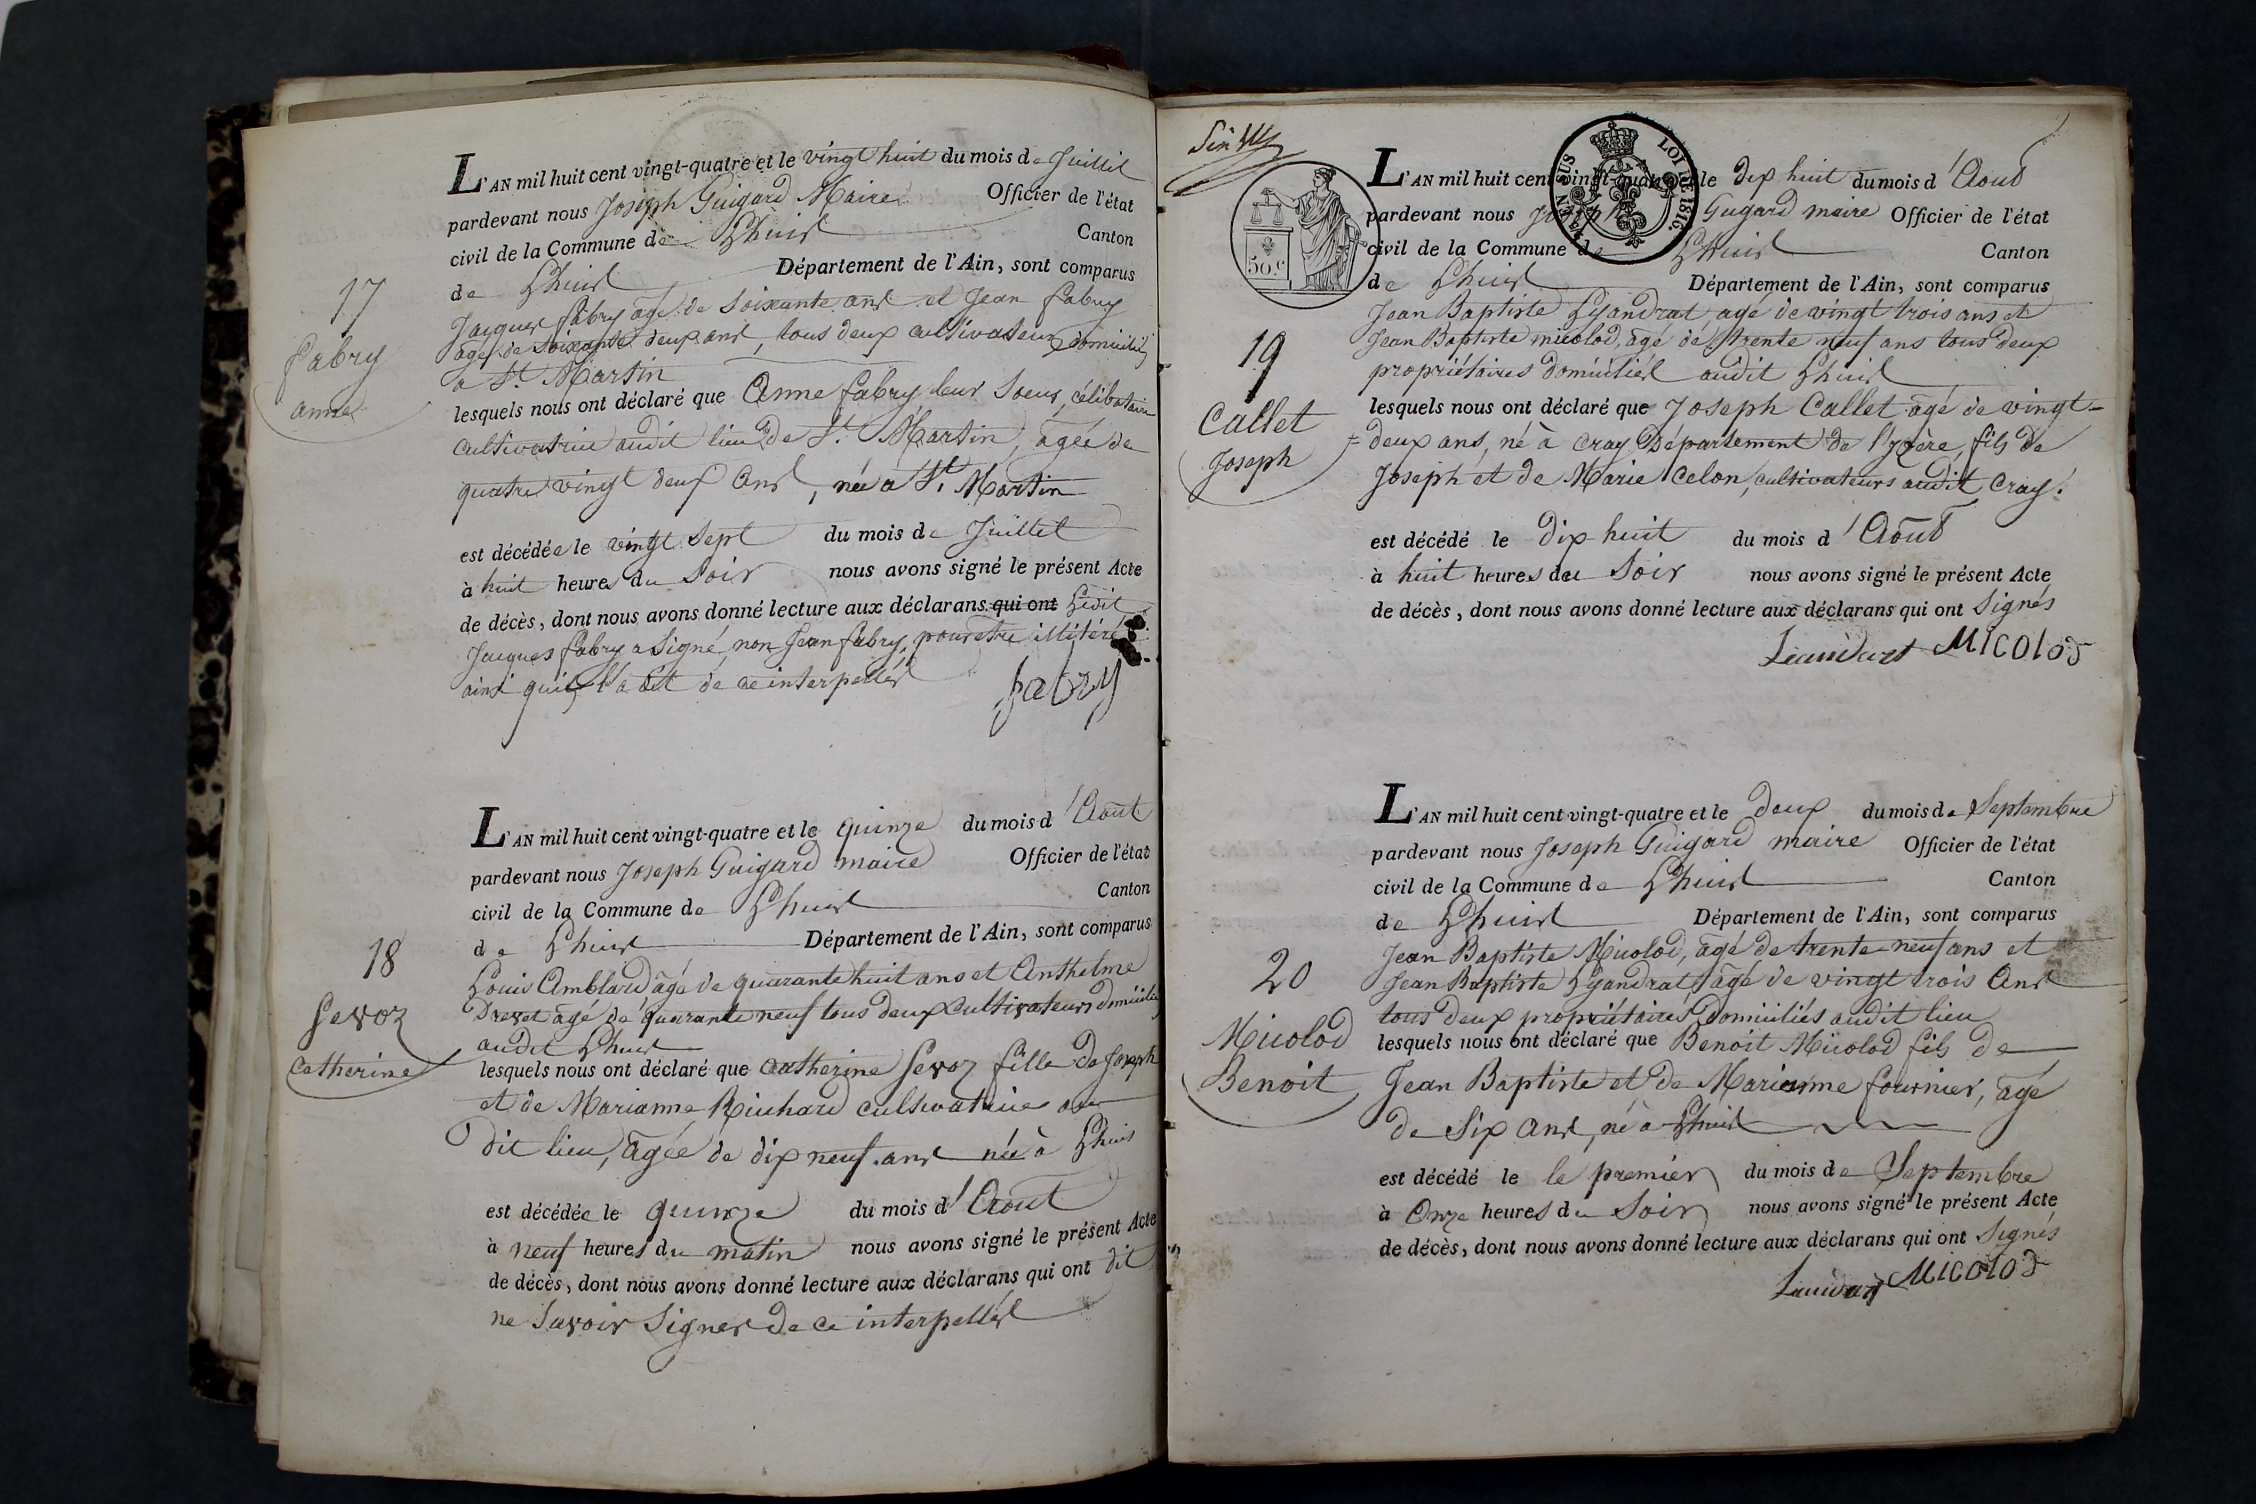 L'AN mil huit cent vingt-quatre et le vingt huit du mois de Juillet
pardevant nous Joseph Guigard Maire Officier de l'état
civil de la Commune de Lhuis Canton
de Lhuis Département de l'Ain, sont comparus
Jacques fabry agé de soixante ans et Jean fabry
agé de soixante deux ans, tous deux cultivateurs domiciliés
a St. Martin
lesquels nous ont déclaré que Anne fabry leur soeur, célibataire
cultivatrice audit lieu de St. Martin, agée de
quatre vingt deux ans, née à St. Martin
est décédée le vingt sept du mois de Juillet
à huit heures du Soir nous avons signé le présent Acte
de décès, dont nous avons donné lecture aux déclarans qui ont Ledit
Jacques fabry a signé, non Jean fabry, pour etre illitéré
ainsi qu'il l'a dit de ce interpellés
fabry
17
fabry
anne
L'AN mil huit cent vingt-quatre et le quinze du mois d'Aout
pardevant nous Joseph Guigard maire Officier de l'état
civil de la Commune de Lhuis Canton
de Lhuis Département de l'Ain, sont comparus
Louis Amblard agé de quarante huit ans et Anthelme
Drevet agé de quarante neuf tous deux cultivateurs domiciliés
audit Lhuis
lesquels nous ont déclaré que catherine Sevoz fille de Joseph
et de Marianne Richard cultivatrice au
dit lieu, agée de dix neuf ans née à Lhuis
est décédée le quinze du mois d'Aout
à neuf heures du matin nous avons signé le présent Acte
de décès, dont nous avons donné lecture aux déclarans qui ont dit
ne Savoir Signer de ce interpellés
18
Sevoz
catherine
50 c
EN SUS LOI DE 1816.
L'AN mil huit cent vingt-quatre et le dix huit du mois d'Aout
pardevant nous Joseph Gugard maire Officier de l'état
civil de la Commune de Lhuis Canton
de Lhuis Département de l'Ain, sont comparus
Jean Baptiste Lyandrat, agé de vingt trois ans et
Jean Baptiste micolod, agé de trente neuf ans tous deux
propriétaires domiciliés audit Lhuis
lesquels nous ont déclaré que Joseph Callet agé de vingt-
deux ans, né à Cray Département de l'yzère, fils de
Joseph et de Marie Celon, cultivateurs audit Cray.
est décédé le dix huit du mois d'Aout
à huit heures du Soir nous avons signé le présent Acte
de décès, dont nous avons donné lecture aux déclarans qui ont Signés
MICOlod
19
Callet
Joseph
L'AN mil huit cent vingt-quatre et le deux du mois de Septembre
pardevant nous Joseph Guigard maire Officier de l'état
civil de la Commune de Lhuis Canton
de Lhuis Département de l'Ain, sont comparus
Jean Baptiste Micolod, agé de trente neuf ans et
Jean Baptiste Lyandrat, agé de vingt trois ans
tous deux propriétaires domiciliés audit lieu
lesquels nous ont déclaré que Benoit Micolod fils de
Jean Baptiste et de Marianne fournier, agé
de Six ans, né à Lhuis
est décédé le le premier du mois de Septembre
à onze heures du Soir nous avons signé le présent Acte
de décès, dont nous avons donné lecture aux déclarans qui ont Signés
MICOlod
20
Micolod
Benoit